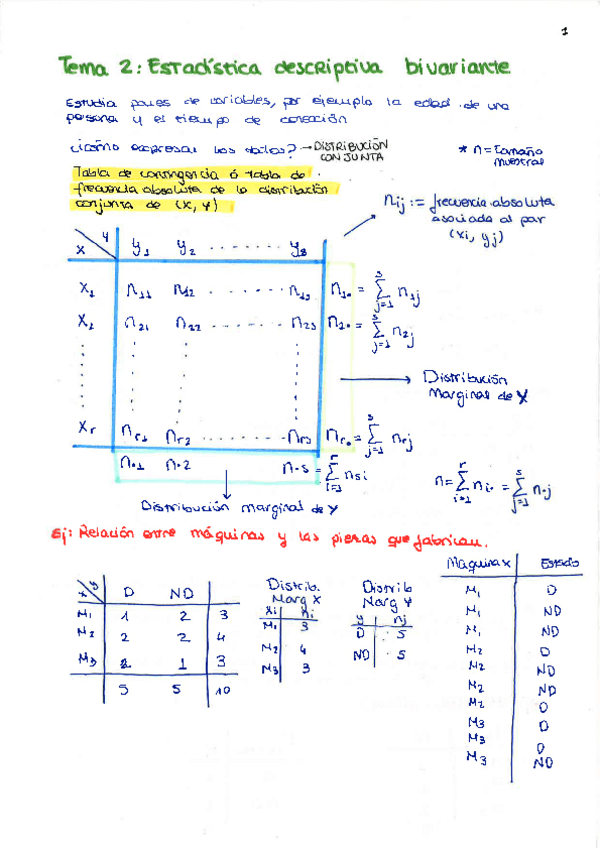 1
Tema 2: Estadística descriptiva bivariante
Estudia pares de variables, por ejemplo la edad de una
persona y el tiempo de conexión
¿Cómo expresar los datos? → DISTRIBUCIÓN CONJUNTA
* n = tamaño muestral
Tabla de contingencia ó tabla de
frecuencia absoluta de la distribución
conjunta de (X, Y)
nij := frecuencia absoluta
asociada al par
(xi, yj)
X Y y1 y2 ....... ys
x1 n11 n12 ....... n1s n1• = Σ_{j=1}^{s} n1j
x2 n21 n22 ....... n2s n2• = Σ_{j=1}^{s} n2j
→ Distribución
Marginal de X
xr nr1 nr2 ....... nrs nr• = Σ_{j=1}^{s} nrj
n•1 n•2 n•s = Σ_{i=1}^{r} nsi
n = Σ_{i=1}^{r} ni• = Σ_{j=1}^{s} n•j
Distribución Marginal de Y
Ej: Relación entre máquinas y las piezas que fabrican.
X Y D ND
M1 1 2 3
M2 2 2 4
M3 2 1 3
5 5 10
Distrib.
Marg X
xi ni
M1 3
M2 4
M3 3
Distrib
Marg Y
y nj
D 5
ND 5
Máquina X Estado
M1 D
M1 ND
M1 ND
M2 D
M2 ND
M2 ND
M2 D
M3 D
M3 D
M3 ND